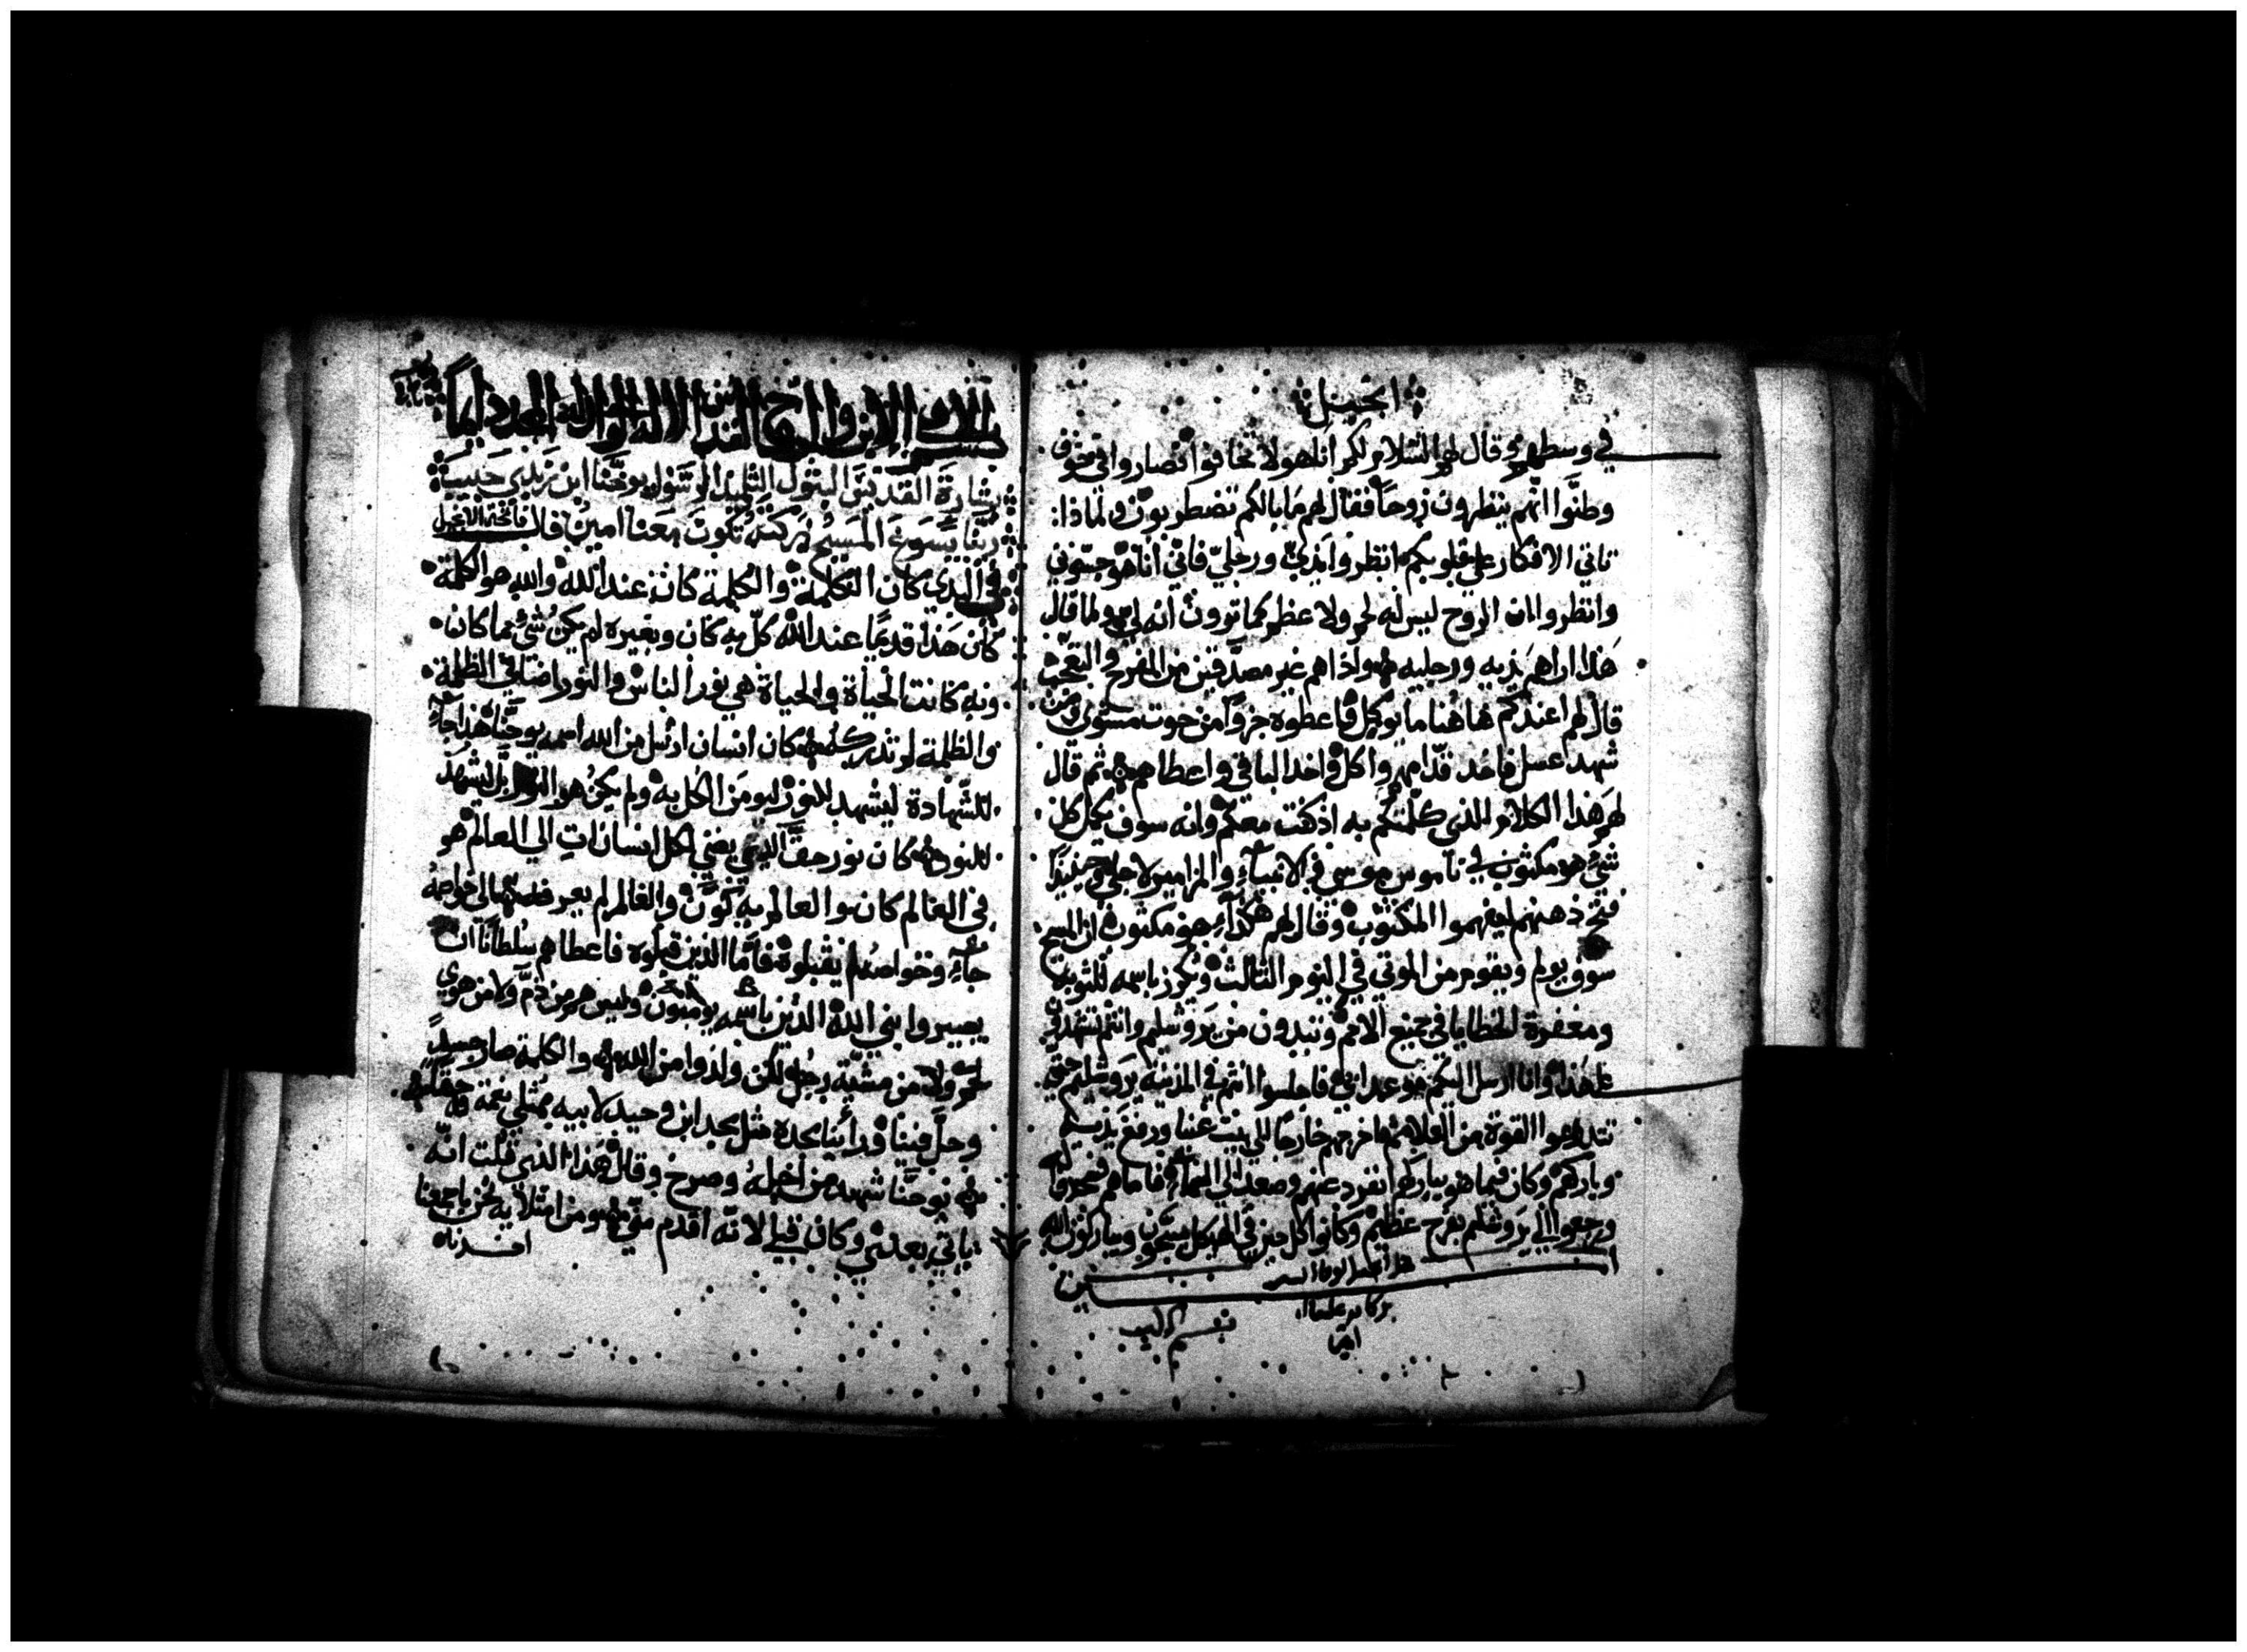 انجيل
في وسطهم وقال لهم السلام لكم انا هو لا تخافوا فصاروا في خوف
وظنوا انهم ينظرون روحا فقال لهم ما بالكم تضطربون ولماذا
تاتي الافكار على قلوبكم انظروا يدي ورجلي فاني انا هو جسوني
وانظروا ان الروح ليس له لحم ولا عظم كما ترون انه لي ولما قال
هذا اراهم يديه ورجليه واذا هم غير مصدقين من الفرح والتعجب
قال لهم اعندكم هاهنا ما يوكل فاعطوه جزوا من حوت مشوي ومن
شهد عسل فاخد قدامهم واكل واخد الباقي واعطاهم ثم قال
لهم هذا الكلام الذي كلمتكم به اذ كنت معكم وانه سوف يكمل كل
شي هو مكتوب في ناموس موسي في الانبياء والمزامير لاجلي وحينيذا
فتح ذهنهم ليفهموا المكتوب وقال لهم هكذا هو مكتوب ان المسيح
سوف يولم ويقوم من الموتي في اليوم الثالث ويكرز باسمه للتوبه
ومغفرة الخطايا في جميع الامم وتبدون من يروشليم وانتم تشهدون
على هذا وانا ارسل اليكم موعد ابي فاجلسوا انتم في المدينة يروشليم حتي
تتدرعوا القوة من العلا ثم اخرجهم خارجا الي بيت عنيا ورفع يديه
وباركهم وكان فيما هو يباركهم انفرد عنهم وصعد الي السماء فاما هم فسجدوا له
ورجعوا الي يروشليم بفرح عظيم وكانوا كل حين في الهيكل يسبحون ويباركون الله
امين
بركاته علينا
امين
باسم الاب والابن والروح القدس الاله الواحد له المجد دايما
بشارة القديس البتول التلميذ الرسول يوحنا ابن زبدي حبيب
ربنا يسوع المسيح بركته تكون معنا امين قال فاتحة الانجيل
في البدي كان الكلمة والكلمة كان عند الله والله هو الكلمة
كان هذا قديما عند الله كل به كان وبغيره لم يكن شئ مما كان
وبه كانت الحياة والحياة هي نور الناس والنور اضا في الظلمة
والظلمة لم تدركه كان انسان ارسل من الله اسمه يوحنا هذا جاء
للشهادة ليشهد للنور ليومن الكل به ولم يكن هو النور بل ليشهد
للنور كان نور حق الذي يضي لكل انسان ات الي العالم هو
في العالم كان والعالم به كون والعالم لم يعرفه الي خواصه
جاء وخواصه لم يقبلوه فاما الذين قبلوه فاعطاهم سلطانا ان
يصيروا بني الله الذين باسمه يومنون وليس هم من دم ولا من هوي
لحم ولا من مشية رجل لكن ولدوا من الله والكلمة صار جسدا
وحل فينا وراينا مجده مثل مجد ابن وحيد لابيه ممتلي نعمة وحقا
يوحنا شهد من اجله وصرخ وقال هذا الذي قلت انه
ياتي بعدي وكان قبلي لانه اقدم مني ومن امتلايه نحن باجمعنا
اخدناه